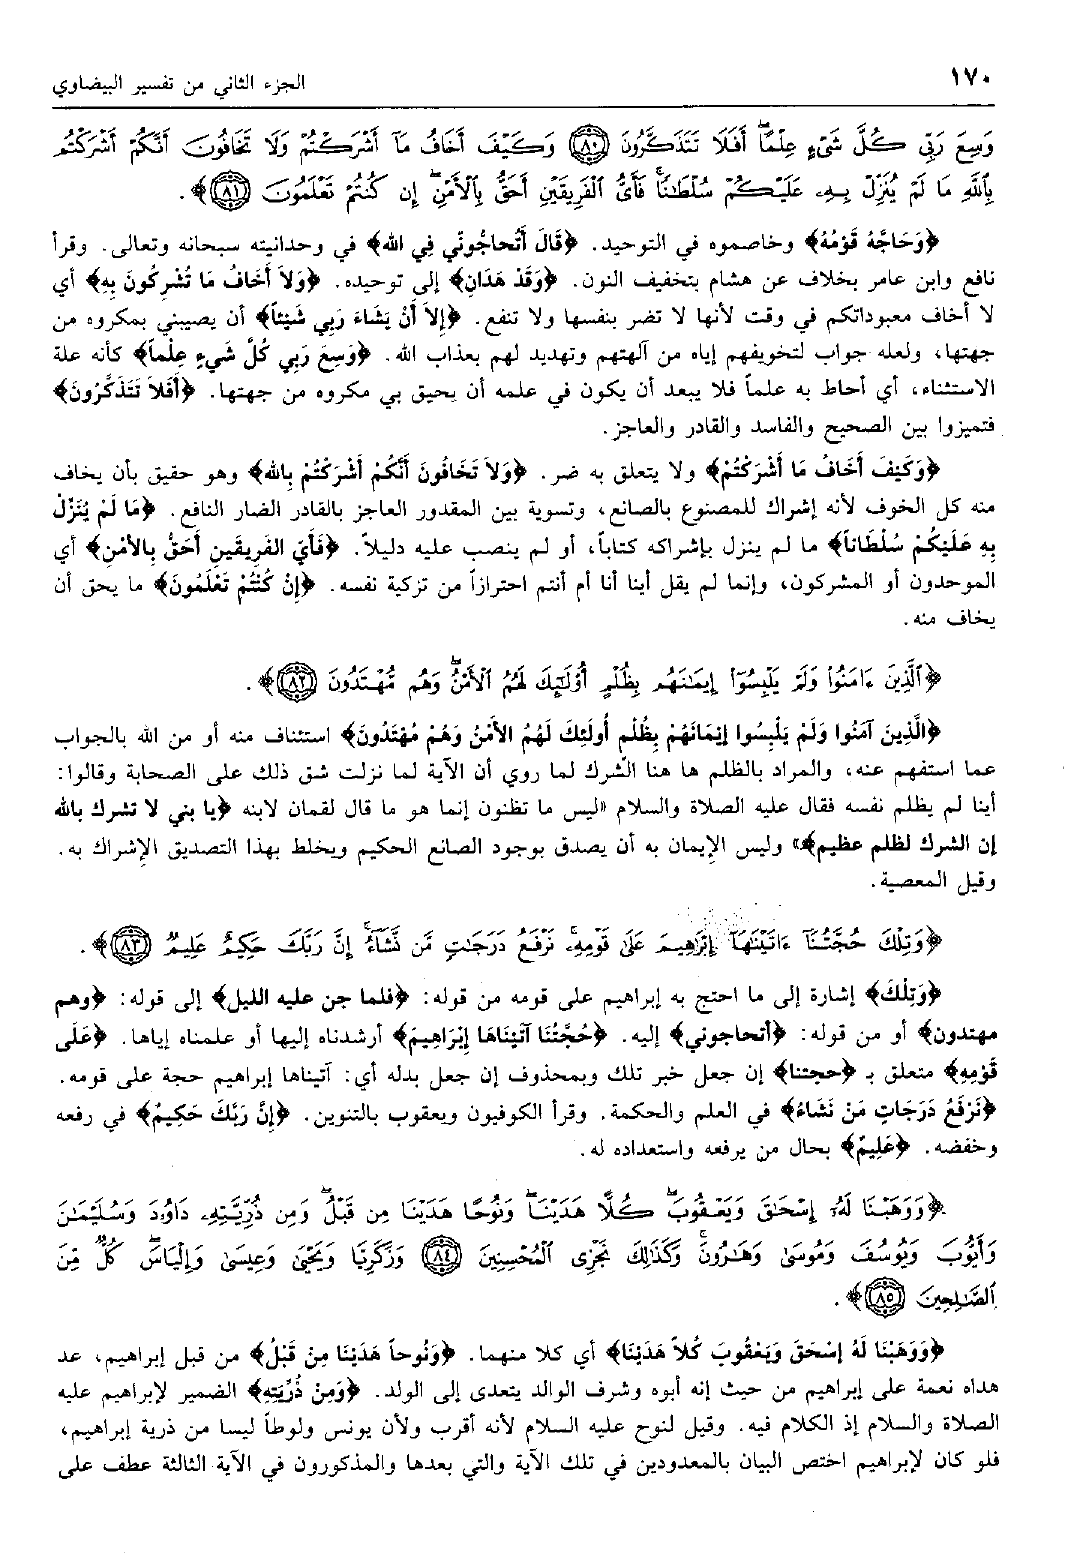 ١٧٠
الجزء الثاني من تفسير البيضاوي
وَسِعَ رَبِّى كُلَّ شَىْءٍ عِلْمًا أَفَلَا تَتَذَكَّرُونَ ﴿٨٠﴾ وَكَيْفَ أَخَافُ مَآ أَشْرَكْتُمْ وَلَا تَخَافُونَ أَنَّكُمْ أَشْرَكْتُم
بِٱللَّهِ مَا لَمْ يُنَزِّلْ بِهِۦ عَلَيْكُمْ سُلْطَٰنًا فَأَىُّ ٱلْفَرِيقَيْنِ أَحَقُّ بِٱلْأَمْنِ إِن كُنتُمْ تَعْلَمُونَ ﴿٨١﴾﴾.
﴿وَحَاجَّهُ قَوْمُهُ﴾ وخاصموه في التوحيد. ﴿قَالَ أَتُحاجُونّي فِي الله﴾ في وحدانيته سبحانه وتعالى. وقرأ
نافع وابن عامر بخلاف عن هشام بتخفيف النون. ﴿وَقَدْ هَدَانِ﴾ إلى توحيده. ﴿وَلاَ أَخَافُ مَا تُشْرِكُونَ بِهِ﴾ أي
لا أخاف معبوداتكم في وقت لأنها لا تضر بنفسها ولا تنفع. ﴿إِلاَ أَنْ يَشَاءَ رَبِي شَيْئاً﴾ أن يصيبني بمكروه من
جهتها، ولعله جواب لتخويفهم إياه من آلهتهم وتهديد لهم بعذاب الله. ﴿وَسِعَ رَبِي كُلَّ شَيءٍ عِلْماً﴾ كأنه علة
الاستثناء، أي أحاط به علماً فلا يبعد أن يكون في علمه أن يحيق بي مكروه من جهتها. ﴿أَفَلاَ تَتَذَكَّرُونَ﴾
فتميزوا بين الصحيح والفاسد والقادر والعاجز.
﴿وَكَيْفَ أَخَافُ مَا أَشْرَكْتُمْ﴾ ولا يتعلق به ضر. ﴿وَلاَ تَخَافُونَ أَنَّكُمْ أَشْرَكْتُمْ بِالله﴾ وهو حقيق بأن يخاف
منه كل الخوف لأنه إشراك للمصنوع بالصانع، وتسوية بين المقدور العاجز بالقادر الضار النافع. ﴿مَا لَمْ يُنَزِّلْ
بِهِ عَلَيْكُمْ سُلْطَاناً﴾ ما لم ينزل بإشراكه كتاباً، أو لم ينصب عليه دليلاً. ﴿فَأَيّ الفَرِيقَينِ أَحَقُّ بِالأَمْنِ﴾ أي
الموحدون أو المشركون، وإنما لم يقل أينا أنا أم أنتم احترازاً من تزكية نفسه. ﴿إِنْ كُنْتُمْ تَعْلَمُونَ﴾ ما يحق أن
يخاف منه.
﴿ٱلَّذِينَ ءَامَنُوا۟ وَلَمْ يَلْبِسُوٓا۟ إِيمَٰنَهُم بِظُلْمٍ أُو۟لَٰٓئِكَ لَهُمُ ٱلْأَمْنُ وَهُم مُّهْتَدُونَ ﴿٨٢﴾﴾.
﴿الَّذِينَ آمَنُوا وَلَمْ يَلْبِسُوا إِيْمَانَهُمْ بِظُلْمٍ أُولَئِكَ لَهُمُ الأَمْنُ وَهُمْ مُهْتَدُونَ﴾ استئناف منه أو من الله بالجواب
عما استفهم عنه، والمراد بالظلم ها هنا الشرك لما روي أن الآية لما نزلت شق ذلك على الصحابة وقالوا:
أينا لم يظلم نفسه فقال عليه الصلاة والسلام «ليس ما تظنون إنما هو ما قال لقمان لابنه ﴿يا بني لا تشرك بالله
إن الشرك لظلم عظيم﴾» وليس الإيمان به أن يصدق بوجود الصانع الحكيم ويخلط بهذا التصديق الإشراك به.
وقيل المعصية.
﴿وَتِلْكَ حُجَّتُنَآ ءَاتَيْنَٰهَآ إِبْرَٰهِيمَ عَلَىٰ قَوْمِهِۦ نَرْفَعُ دَرَجَٰتٍ مَّن نَّشَآءُ إِنَّ رَبَّكَ حَكِيمٌ عَلِيمٌ ﴿٨٣﴾﴾.
﴿وَتِلْكَ﴾ إشارة إلى ما احتج به إبراهيم على قومه من قوله: ﴿فلما جن عليه الليل﴾ إلى قوله: ﴿وهم
مهتدون﴾ أو من قوله: ﴿أتحاجوني﴾ إليه. ﴿حُجَّتُنَا آتَيْنَاهَا إِبْرَاهِيمَ﴾ أرشدناه إليها أو علمناه إياها. ﴿عَلَى
قَوْمِهِ﴾ متعلق بـ ﴿حجتنا﴾ إن جعل خبر تلك وبمحذوف إن جعل بدله أي: آتيناها إبراهيم حجة على قومه.
﴿نَرْفَعُ دَرَجَاتٍ مَنْ نَشَاءُ﴾ في العلم والحكمة. وقرأ الكوفيون ويعقوب بالتنوين. ﴿إِنَّ رَبَّكَ حَكِيمٌ﴾ في رفعه
وخفضه. ﴿عَلِيمٌ﴾ بحال من يرفعه واستعداده له.
﴿وَوَهَبْنَا لَهُۥٓ إِسْحَٰقَ وَيَعْقُوبَ كُلًّا هَدَيْنَا وَنُوحًا هَدَيْنَا مِن قَبْلُ وَمِن ذُرِّيَّتِهِۦ دَاوُۥدَ وَسُلَيْمَٰنَ
وَأَيُّوبَ وَيُوسُفَ وَمُوسَىٰ وَهَٰرُونَ وَكَذَٰلِكَ نَجْزِى ٱلْمُحْسِنِينَ ﴿٨٤﴾ وَزَكَرِيَّا وَيَحْيَىٰ وَعِيسَىٰ وَإِلْيَاسَ كُلٌّ مِّنَ
ٱلصَّٰلِحِينَ ﴿٨٥﴾﴾.
﴿وَوَهَبْنَا لَهُ إِسْحَقَ وَيَعْقُوبَ كُلاً هَدَيْنَا﴾ أي كلا منهما. ﴿وَنُوحاً هَدَيْنَا مِنْ قَبْلُ﴾ من قبل إبراهيم، عد
هداه نعمة على إبراهيم من حيث إنه أبوه وشرف الوالد يتعدى إلى الولد. ﴿وَمِنْ ذُرِّيَتِهِ﴾ الضمير لإبراهيم عليه
الصلاة والسلام إذ الكلام فيه. وقيل لنوح عليه السلام لأنه أقرب ولأن يونس ولوطاً ليسا من ذرية إبراهيم،
فلو كان لإبراهيم اختص البيان بالمعدودين في تلك الآية والتي بعدها والمذكورون في الآية الثالثة عطف على